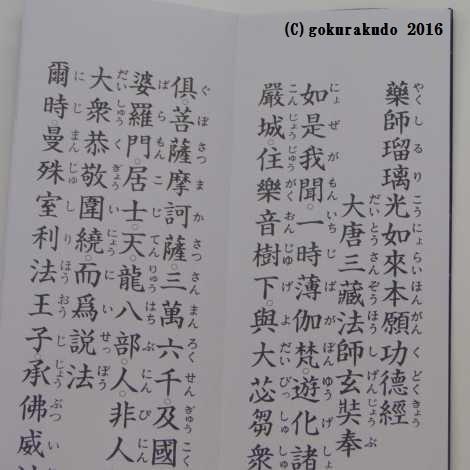 (C) gokurakudo 2016
藥師瑠璃光如來本願功德經
大唐三藏法師玄奘奉
如是我聞。一時薄伽梵。遊化諸
嚴城。住樂音樹下。與大苾芻衆
俱。菩薩摩訶薩。三萬六千。及國
婆羅門。居士。天。龍八部。人。非人
大衆恭敬圍繞。而爲説法
爾時。曼殊室利法王子。承佛威